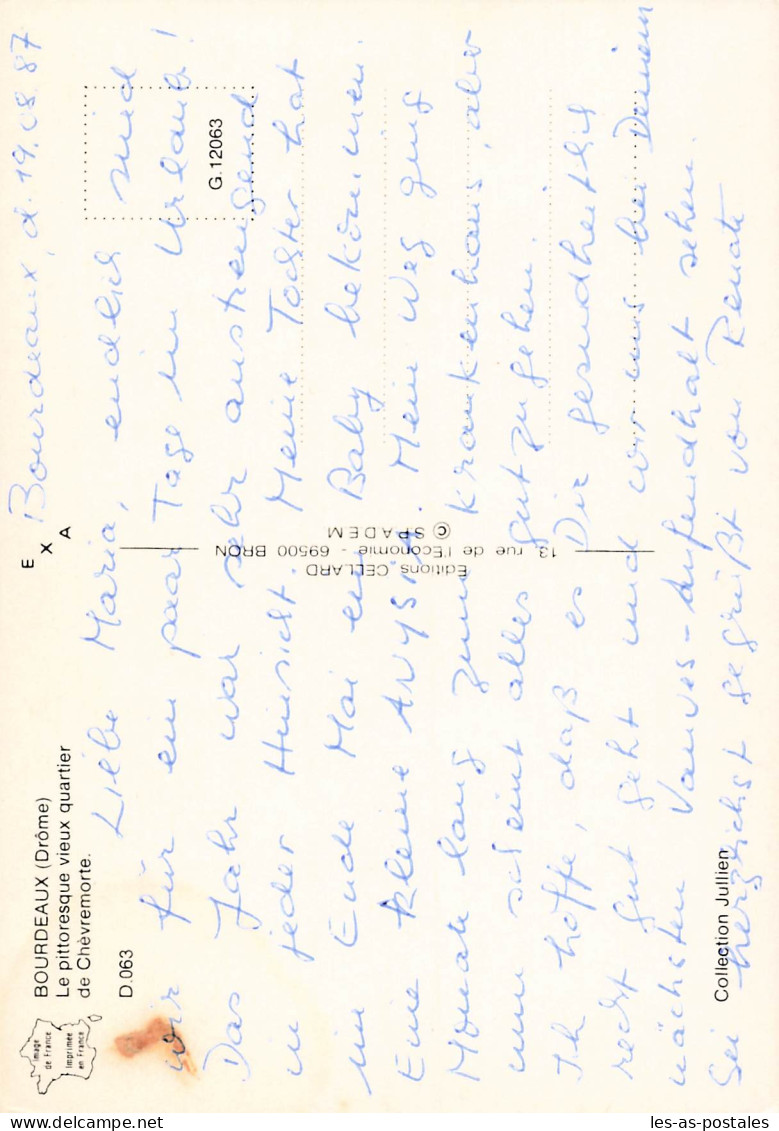 Bourdeaux, d. 19.08.87
Liebe Maria, endlich sind
wir für ein paar Tage im Urlaub!
Das Jahr war sehr anstrengend
in jeder Hinsicht. Meine Tochter hat
im Ende Mai ein Baby bekommen.
Eine kleine . Mein Weg ging
Monate lang zum Krankenhaus, aber
nun scheint alles gutzugehen.
Ich hoffe, daß es Dir gesundheitlich
recht gut geht und wir uns bei Deinem
nächsten Vanves-Aufendhalt sehen.
Sei herzlichst gegrüßt von Renate
Image
de France
Imprimée
en France
BOURDEAUX (Drôme)
Le pittoresque vieux quartier
de Chèvremorte.
D.063
E
X
A
G.12063
Editions CELLARD
13 rue de l'Economie - 69500 BRON
© SPADEM
Collection Jullien
les-as-postales